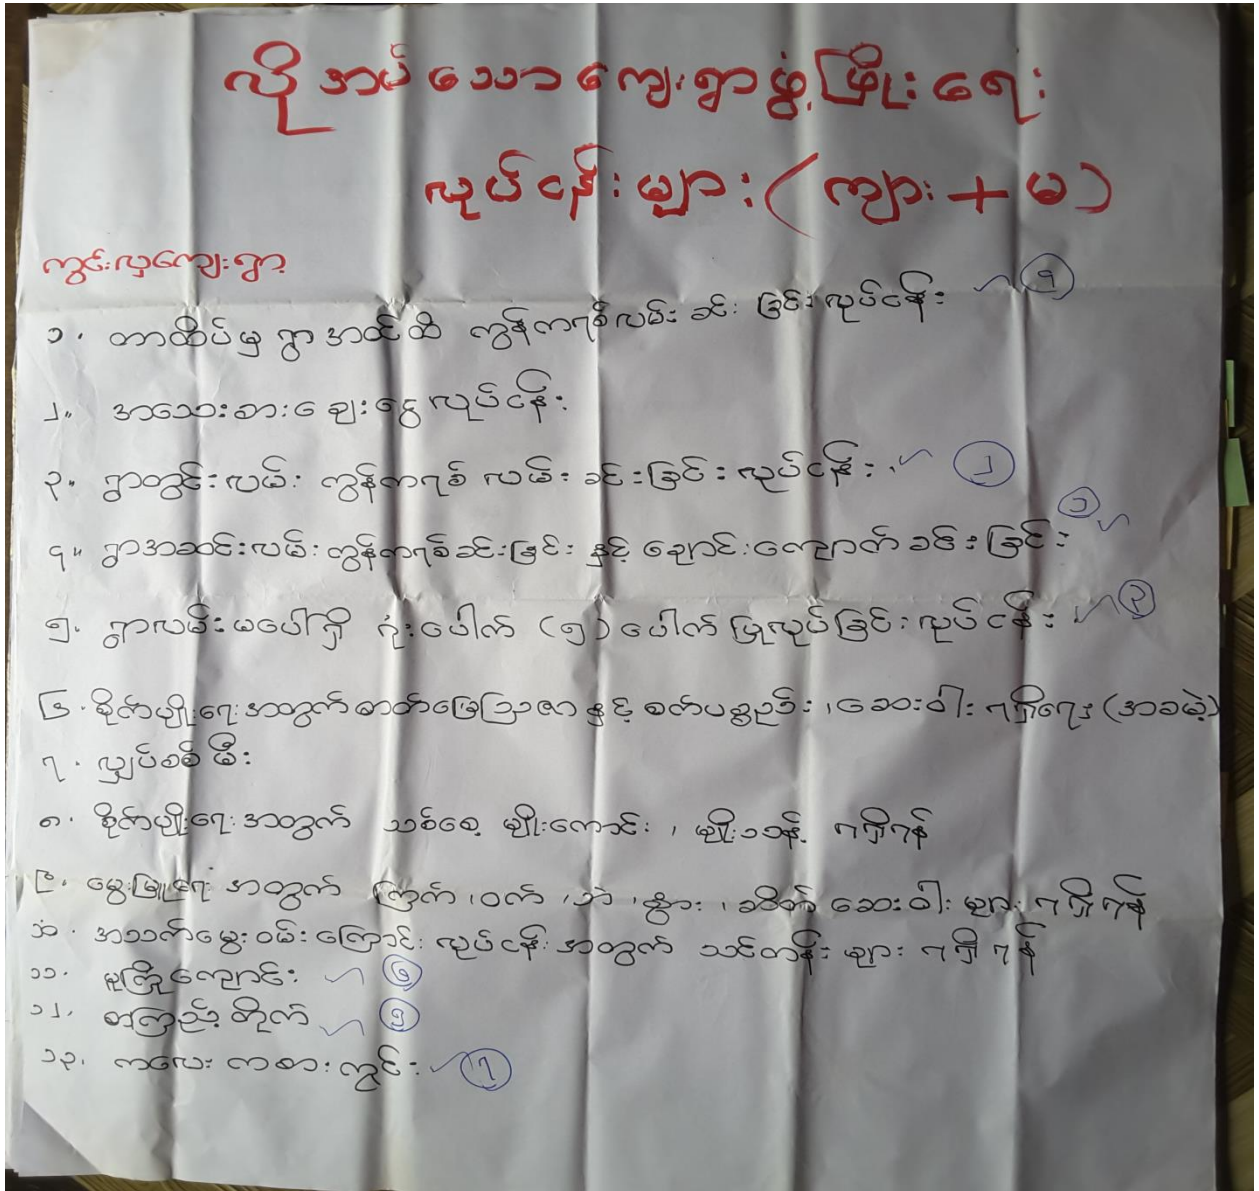 လိုအပ်သောကျေးရွာဖွံ့ဖြိုးရေး
လုပ်ငန်းများ (ကျား + မ)
ကွင်းလှကျေးရွာ
၁. တာထိပ်မှ ရွာအထိ ကွန်ကရစ်လမ်းခင်းခြင်းလုပ်ငန်း ၄
၂။ အသေးစားချေးငွေလုပ်ငန်း
၃။ ရွာတွင်းလမ်း ကွန်ကရစ် လမ်းခင်းခြင်းလုပ်ငန်း ၂
၄။ ရွာအဆင်းလမ်းကွန်ကရစ်ခင်းခြင်း နှင့် ချောင်းကျောက်ခင်းခြင်း ၁
၅. ရွာလမ်းမပေါ်ရှိ ဂုံးပေါက် (၅) ပေါက် ပြုလုပ်ခြင်းလုပ်ငန်း ၃
၆. စိုက်ပျိုးရေးအတွက်ဓာတ်မြေဩဇာနှင့် စက်ပစ္စည်း၊ ဆေးဝါးရရှိရေး (အခမဲ့)
၇. လျှပ်စစ်မီး
၈. စိုက်ပျိုးရေးအတွက် သစ်စေ့ မျိုးကောင်း၊ မျိုးသန့် ရရှိရန်
၉. မွေးမြူရေး အတွက် ကြက်၊ ဝက်၊ ဘဲ၊ နွား၊ ဆိတ် ဆေးဝါးများ ရရှိရန်
၁၀. အသက်မွေးဝမ်းကြောင်းလုပ်ငန်းအတွက် သင်တန်းများ ရရှိရန်
၁၁. မူကြိုကျောင်း ၆
၁၂. စာကြည့်တိုက် ၅
၁၃. ကလေးကစားကွင်း ၇